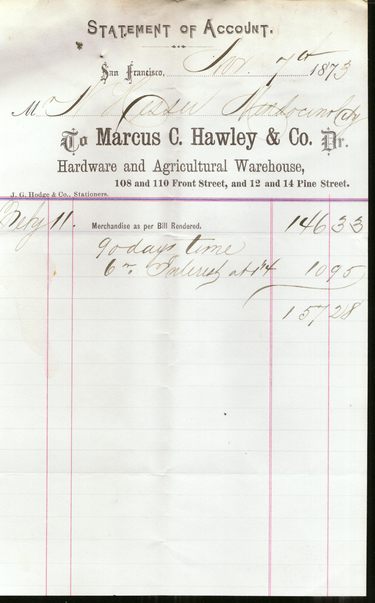 STATEMENT OF ACCOUNT.
San Francisco, Nov. 7th 1873
Mr Mendocino City
To Marcus C. Hawley & Co. Dr.
Hardware and Agricultural Warehouse,
108 and 110 Front Street, and 12 and 14 Pine Street.
J. G. Hodge & Co., Stationers.
11. Merchandise as per Bill Rendered. 146 33
90 days time
6 Interest at 10 95
157 28